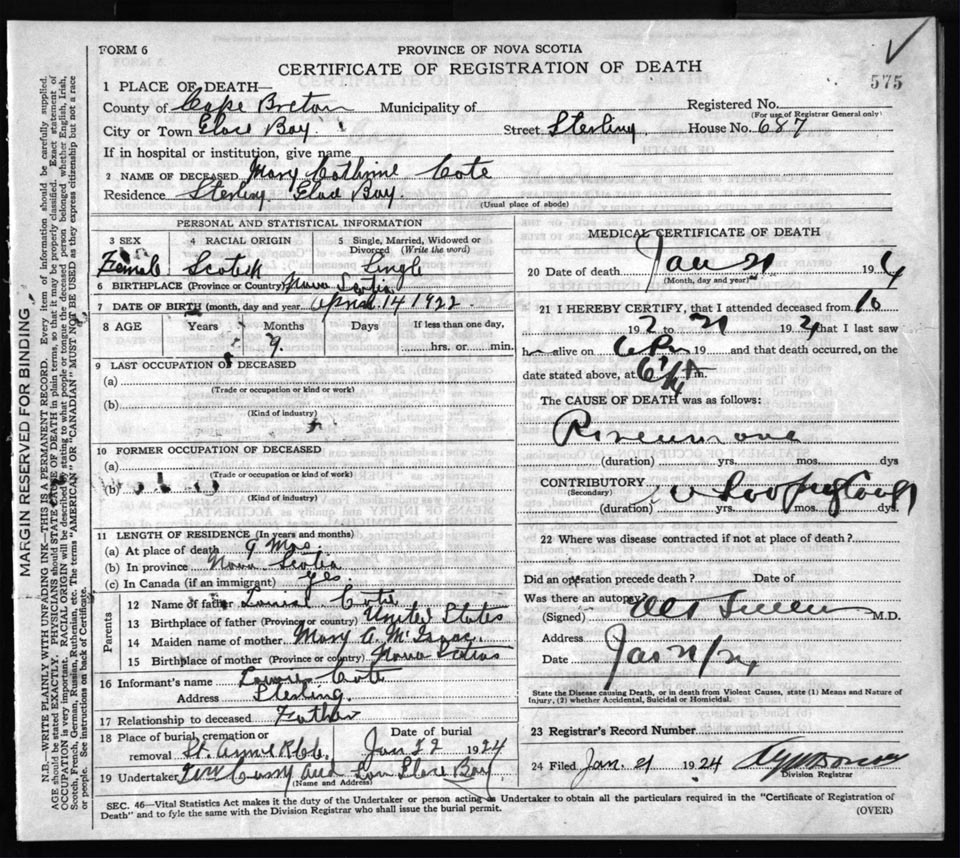 FORM 6
PROVINCE OF NOVA SCOTIA
CERTIFICATE OF REGISTRATION OF DEATH
575
1 PLACE OF DEATH—
County of Cape Breton Municipality of Registered No.
(For use of Registrar General only)
City or Town Glace Bay Street Sterling House No. 687
If in hospital or institution, give name
2 NAME OF DECEASED Mary Cathrine Cote
Residence Sterling Glace Bay.
(Usual place of abode)
PERSONAL AND STATISTICAL INFORMATION
3 SEX 4 RACIAL ORIGIN 5 Single, Married, Widowed or Divorced (Write the word)
Female Scotch Single
6 BIRTHPLACE (Province or Country) Nova Scotia
7 DATE OF BIRTH (month, day and year) April 14 1922
8 AGE Years Months Days If less than one day,
9 hrs. or min.
9 LAST OCCUPATION OF DECEASED
(a)
(Trade or occupation or kind or work)
(b)
(Kind of industry)
10 FORMER OCCUPATION OF DECEASED
(a)
(Trade or occupation or kind of work)
(b)
(Kind of industry)
11 LENGTH OF RESIDENCE (In years and months)
(a) At place of death 9 Mos.
(b) In province Nova Scotia
(c) In Canada (if an immigrant) yes.
Parents
12 Name of father Cote
13 Birthplace of father (Province or country) United States
14 Maiden name of mother Mary A. McIsaac.
15 Birthplace of mother (Province or country) Nova Scotia
16 Informant's name Cote
Address Sterling.
17 Relationship to deceased Father
18 Place of burial, cremation or removal St. Anne Date of burial Jan 22 1924
19 Undertaker Curry and Son Glace Bay
(Name and Address)
MEDICAL CERTIFICATE OF DEATH
20 Date of death Jan 21 192 4
(Month, day and year)
21 I HEREBY CERTIFY, that I attended deceased from
192 to 21 192 4 that I last saw
h alive on 19 and that death occurred, on the
date stated above, at m.
The CAUSE OF DEATH was as follows:
Pneumonia
(duration) yrs. mos. dys
CONTRIBUTORY Whooping Cough
(Secondary)
(duration) yrs. mos. dys.
22 Where was disease contracted if not at place of death?
Did an operation precede death? Date of
Was there an autopsy
(Signed) M.D.
Address
Date
State the Disease causing Death, or in death from Violent Causes, state (1) Means and Nature of Injury, (2) whether Accidental, Suicidal or Homicidal.
23 Registrar's Record Number
24 Filed Jan. 21 1924
Division Registrar
SEC. 46—Vital Statistics Act makes it the duty of the Undertaker or person acting as Undertaker to obtain all the particulars required in the "Certificate of Registration of
Death" and to fyle the same with the Division Registrar who shall issue the burial permit. (OVER)
MARGIN RESERVED FOR BINDING
N.B.—WRITE PLAINLY WITH UNFADING INK—THIS IS A PERMANENT RECORD. Every item of information should be carefully supplied.
AGE should be stated EXACTLY. PHYSICIANS should STATE CAUSE OF DEATH in plain terms, so that it may be properly classified. Exact statement of
OCCUPATION is very important. RACIAL ORIGIN will be described by stating to what people or tongue the deceased person belonged whether English, Irish,
Scotch, French, German, Russian, Ruthenian, etc. The terms "AMERICAN" OR "CANADIAN" MUST NOT BE USED as they express citizenship but not a race
or people. See instructions on back of Certificate.